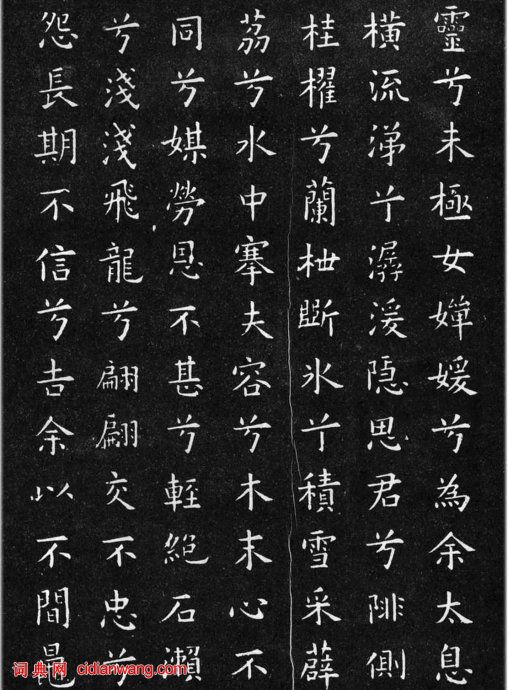 靈兮未極女嬋媛兮為余太息
橫流涕兮潺湲隱思君兮陫側
桂櫂兮蘭枻斲冰兮積雪采薜
荔兮水中搴夫容兮木末心不
同兮媒勞恩不甚兮輕絕石瀨
兮淺淺飛龍兮翩翩交不忠兮
怨長期不信兮告余以不間鼂
词典网 cidianwang.com